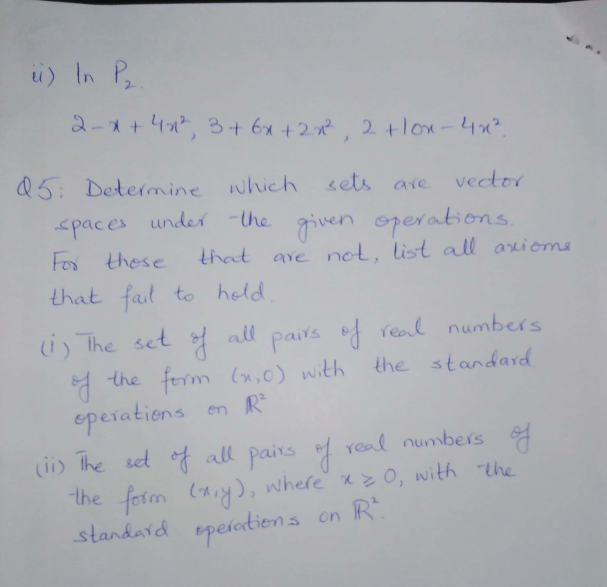 ii) In P₂.
2 - x + 4x², 3 + 6x + 2x², 2 + 10x - 4x².
Q5: Determine which sets are vector
spaces under the given operations.
For those that are not, list all axioms
that fail to hold.
(i) The set of all pairs of real numbers
of the form (x,0) with the standard
operations on ℝ²
(ii) The set of all pairs of real numbers of
the form (x,y), where x ≥ 0, with the
standard operations on ℝ².